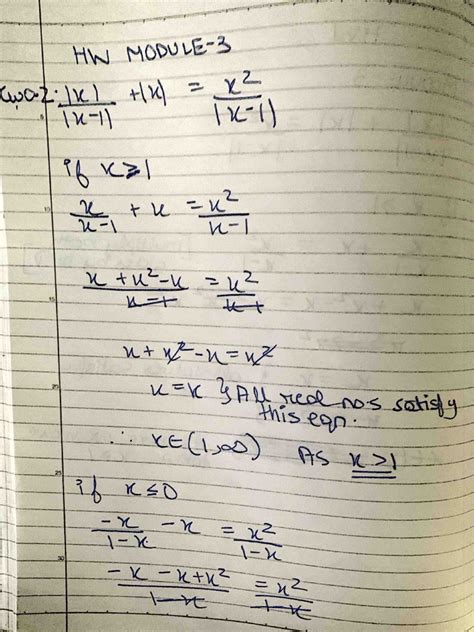 HW MODULE-3
Q-2: |x|/|x-1| + |x| = x²/|x-1|
if x ≥ 1
x/x-1 + x = x²/x-1
x + x² - x/x-1 = x²/x-1
x + x² - x = x²
x = x } All real nos satisfy
this eqn.
∴ x ∈ (1, ∞) As x > 1
if x ≤ 0
-x/1-x - x = x²/1-x
-x - x + x²/1-x = x²/1-x